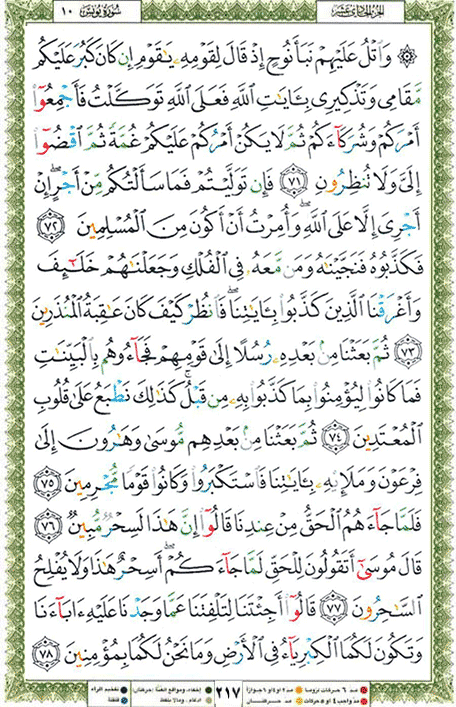 الجزء الحادي عشر سورة يونس ١٠
۞ وَاتْلُ عَلَيْهِمْ نَبَأَ نُوحٍ إِذْ قَالَ لِقَوْمِهِۦ يَٰقَوْمِ إِن كَانَ كَبُرَ عَلَيْكُم
مَّقَامِى وَتَذْكِيرِى بِـَٔايَٰتِ اللَّهِ فَعَلَى اللَّهِ تَوَكَّلْتُ فَأَجْمِعُوٓا۟
أَمْرَكُمْ وَشُرَكَآءَكُمْ ثُمَّ لَا يَكُنْ أَمْرُكُمْ عَلَيْكُمْ غُمَّةً ثُمَّ اقْضُوٓا۟
إِلَىَّ وَلَا تُنظِرُونِ ٧١ فَإِن تَوَلَّيْتُمْ فَمَا سَأَلْتُكُم مِّنْ أَجْرٍ إِنْ
أَجْرِىَ إِلَّا عَلَى اللَّهِ وَأُمِرْتُ أَنْ أَكُونَ مِنَ الْمُسْلِمِينَ ٧٢
فَكَذَّبُوهُ فَنَجَّيْنَٰهُ وَمَن مَّعَهُۥ فِى الْفُلْكِ وَجَعَلْنَٰهُمْ خَلَٰٓئِفَ
وَأَغْرَقْنَا الَّذِينَ كَذَّبُوا۟ بِـَٔايَٰتِنَا فَانظُرْ كَيْفَ كَانَ عَٰقِبَةُ الْمُنذَرِينَ
٧٣ ثُمَّ بَعَثْنَا مِنۢ بَعْدِهِۦ رُسُلًا إِلَىٰ قَوْمِهِمْ فَجَآءُوهُم بِالْبَيِّنَٰتِ
فَمَا كَانُوا۟ لِيُؤْمِنُوا۟ بِمَا كَذَّبُوا۟ بِهِۦ مِن قَبْلُ كَذَٰلِكَ نَطْبَعُ عَلَىٰ قُلُوبِ
الْمُعْتَدِينَ ٧٤ ثُمَّ بَعَثْنَا مِنۢ بَعْدِهِم مُّوسَىٰ وَهَٰرُونَ إِلَىٰ
فِرْعَوْنَ وَمَلَإِي۟هِۦ بِـَٔايَٰتِنَا فَاسْتَكْبَرُوا۟ وَكَانُوا۟ قَوْمًا مُّجْرِمِينَ ٧٥
فَلَمَّا جَآءَهُمُ الْحَقُّ مِنْ عِندِنَا قَالُوٓا۟ إِنَّ هَٰذَا لَسِحْرٌ مُّبِينٌ ٧٦
قَالَ مُوسَىٰٓ أَتَقُولُونَ لِلْحَقِّ لَمَّا جَآءَكُمْ أَسِحْرٌ هَٰذَا وَلَا يُفْلِحُ
السَّٰحِرُونَ ٧٧ قَالُوٓا۟ أَجِئْتَنَا لِتَلْفِتَنَا عَمَّا وَجَدْنَا عَلَيْهِ ءَابَآءَنَا
وَتَكُونَ لَكُمَا الْكِبْرِيَآءُ فِى الْأَرْضِ وَمَا نَحْنُ لَكُمَا بِمُؤْمِنِينَ ٧٨
مد ٦ حركات لزوماً مد ٢ أو ٤ أو ٦ جوازاً ٢١٧ إخفاء، ومواقع الغنة (حركتان) تفخيم الراء
مد واجب ٤ أو ٥ حركات مد حركتان إدغام، وما لا يلفظ قلقلة